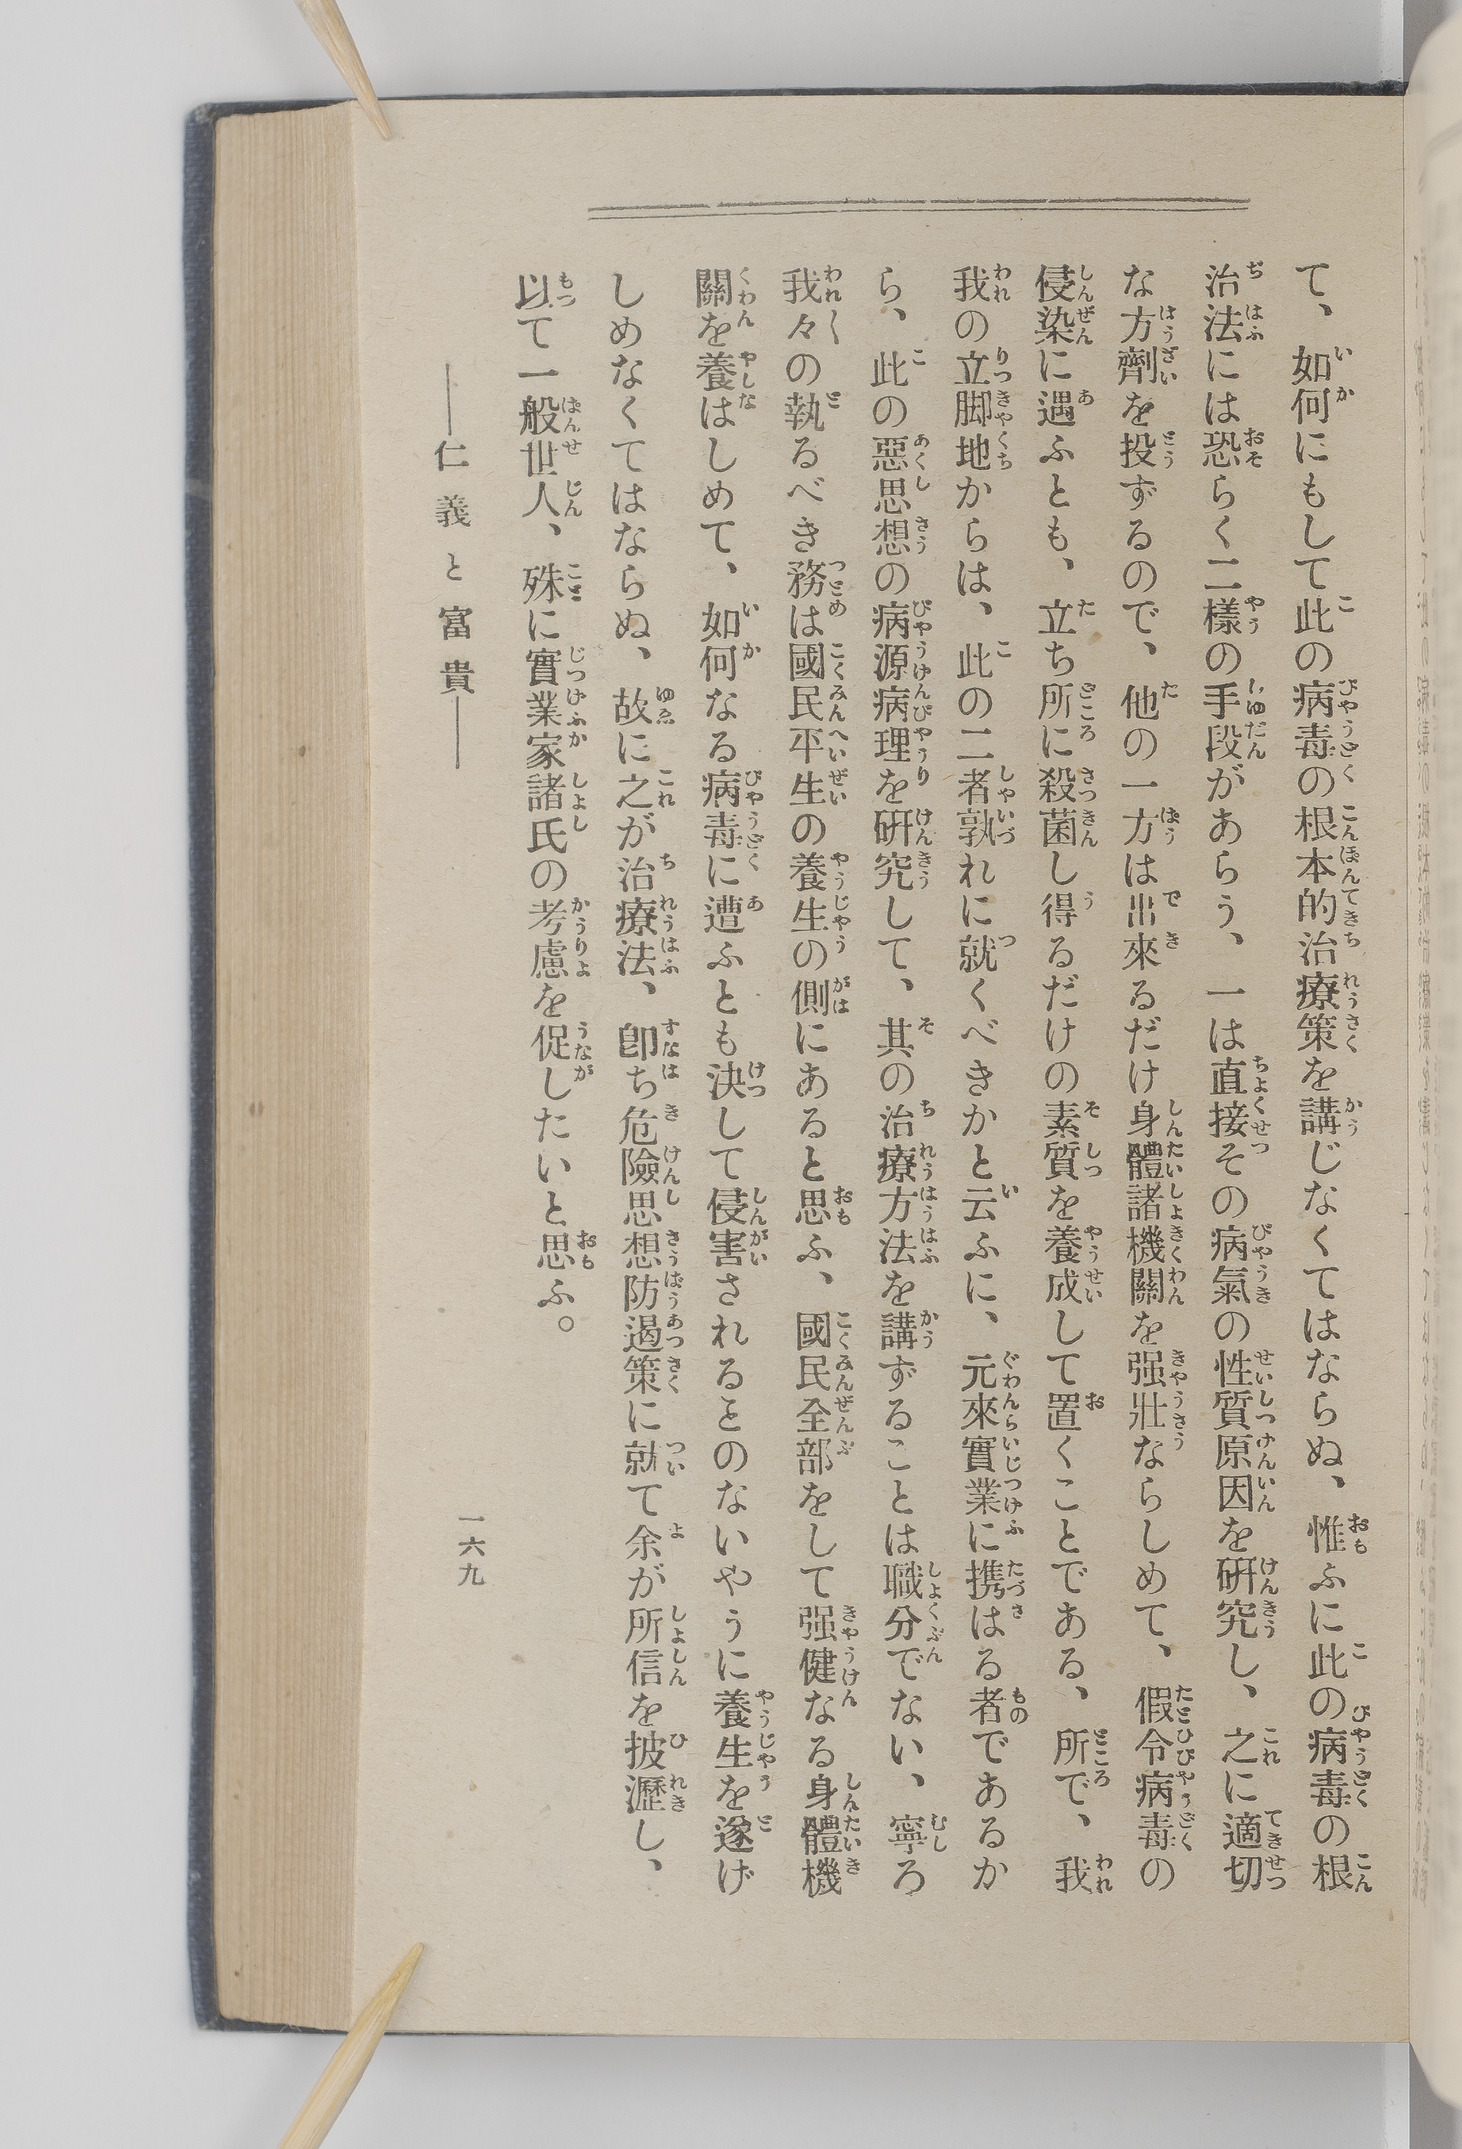 て、如何にもして此の病毒の根本的治療策を講じなくてはならぬ、惟ふに此の病毒の根
治法には恐らく二樣の手段があらう、一は直接その病氣の性質原因を研究し、之に適切
な方劑を投ずるので、他の一方は出來るだけ身體諸機關を强壯ならしめて、假令病毒の
侵染に遇ふとも、立ち所に殺菌し得るだけの素質を養成して置くことである、所で、我
我の立脚地からは、此の二者孰れに就くべきかと云ふに、元來實業に携はる者であるか
ら、此の惡思想の病源病理を研究して、其の治療方法を講ずることは職分でない、寧ろ
我々の執るべき務は國民平生の養生の側にあると思ふ、國民全部をして强健なる身體機
關を養はしめて、如何なる病毒に遭ふとも決して侵害されるとのないやうに養生を遂げ
しめなくてはならぬ、故に之が治療法、卽ち危險思想防遏策に就て余が所信を披瀝し、
以て一般世人、殊に實業家諸氏の考慮を促したいと思ふ。
――仁義と富貴――
一六九